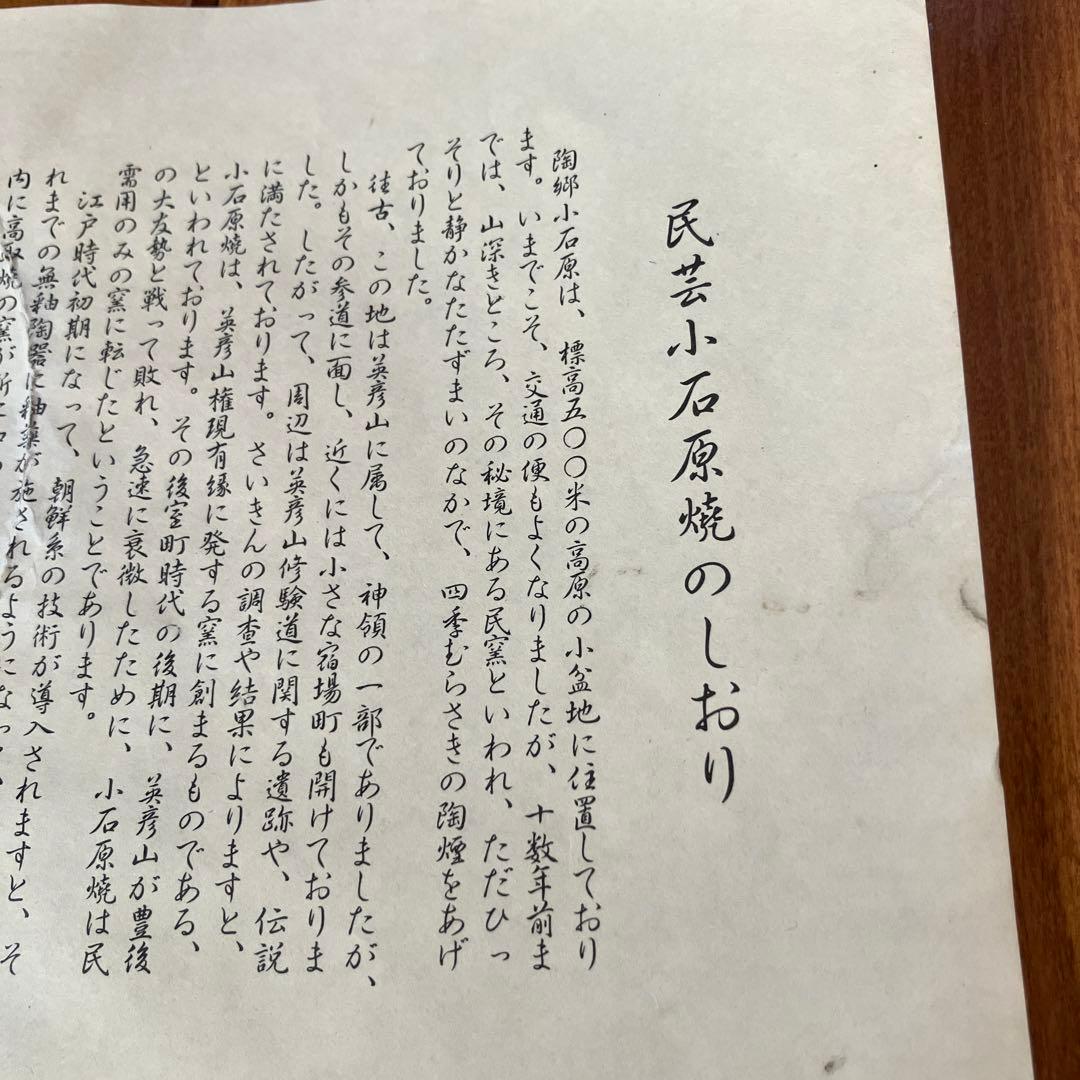 民芸小石原焼のしおり
陶郷小石原は、標高五〇〇米の高原の小盆地に住置しており
ます。いまでこそ、交通の便もよくなりましたが、十数年前ま
では、山深きところ、その秘境にある民窯といわれ、ただひっ
そりと静かなたたずまいのなかで、四季むらさきの陶煙をあげ
ておりました。
往古、この地は英彦山に属して、神領の一部でありましたが、
しかもその参道に面し、近くには小さな宿場町も開けておりま
した。したがって、周辺は英彦山修験道に関する遺跡や、伝説
に満たされております。さいきんの調査や結果によりますと、
小石原焼は、英彦山権現有縁に発する窯に創まるものである、
といわれております。その後室町時代の後期に、英彦山が豊後
の大友勢と戦って敗れ、急速に衰微したために、小石原焼は民
需用のみの窯に転じたということであります。
江戸時代初期になって、朝鮮系の技術が導入されますと、そ
れまでの無釉陶器に釉薬が施されるようになっ
内に高取焼の窯が